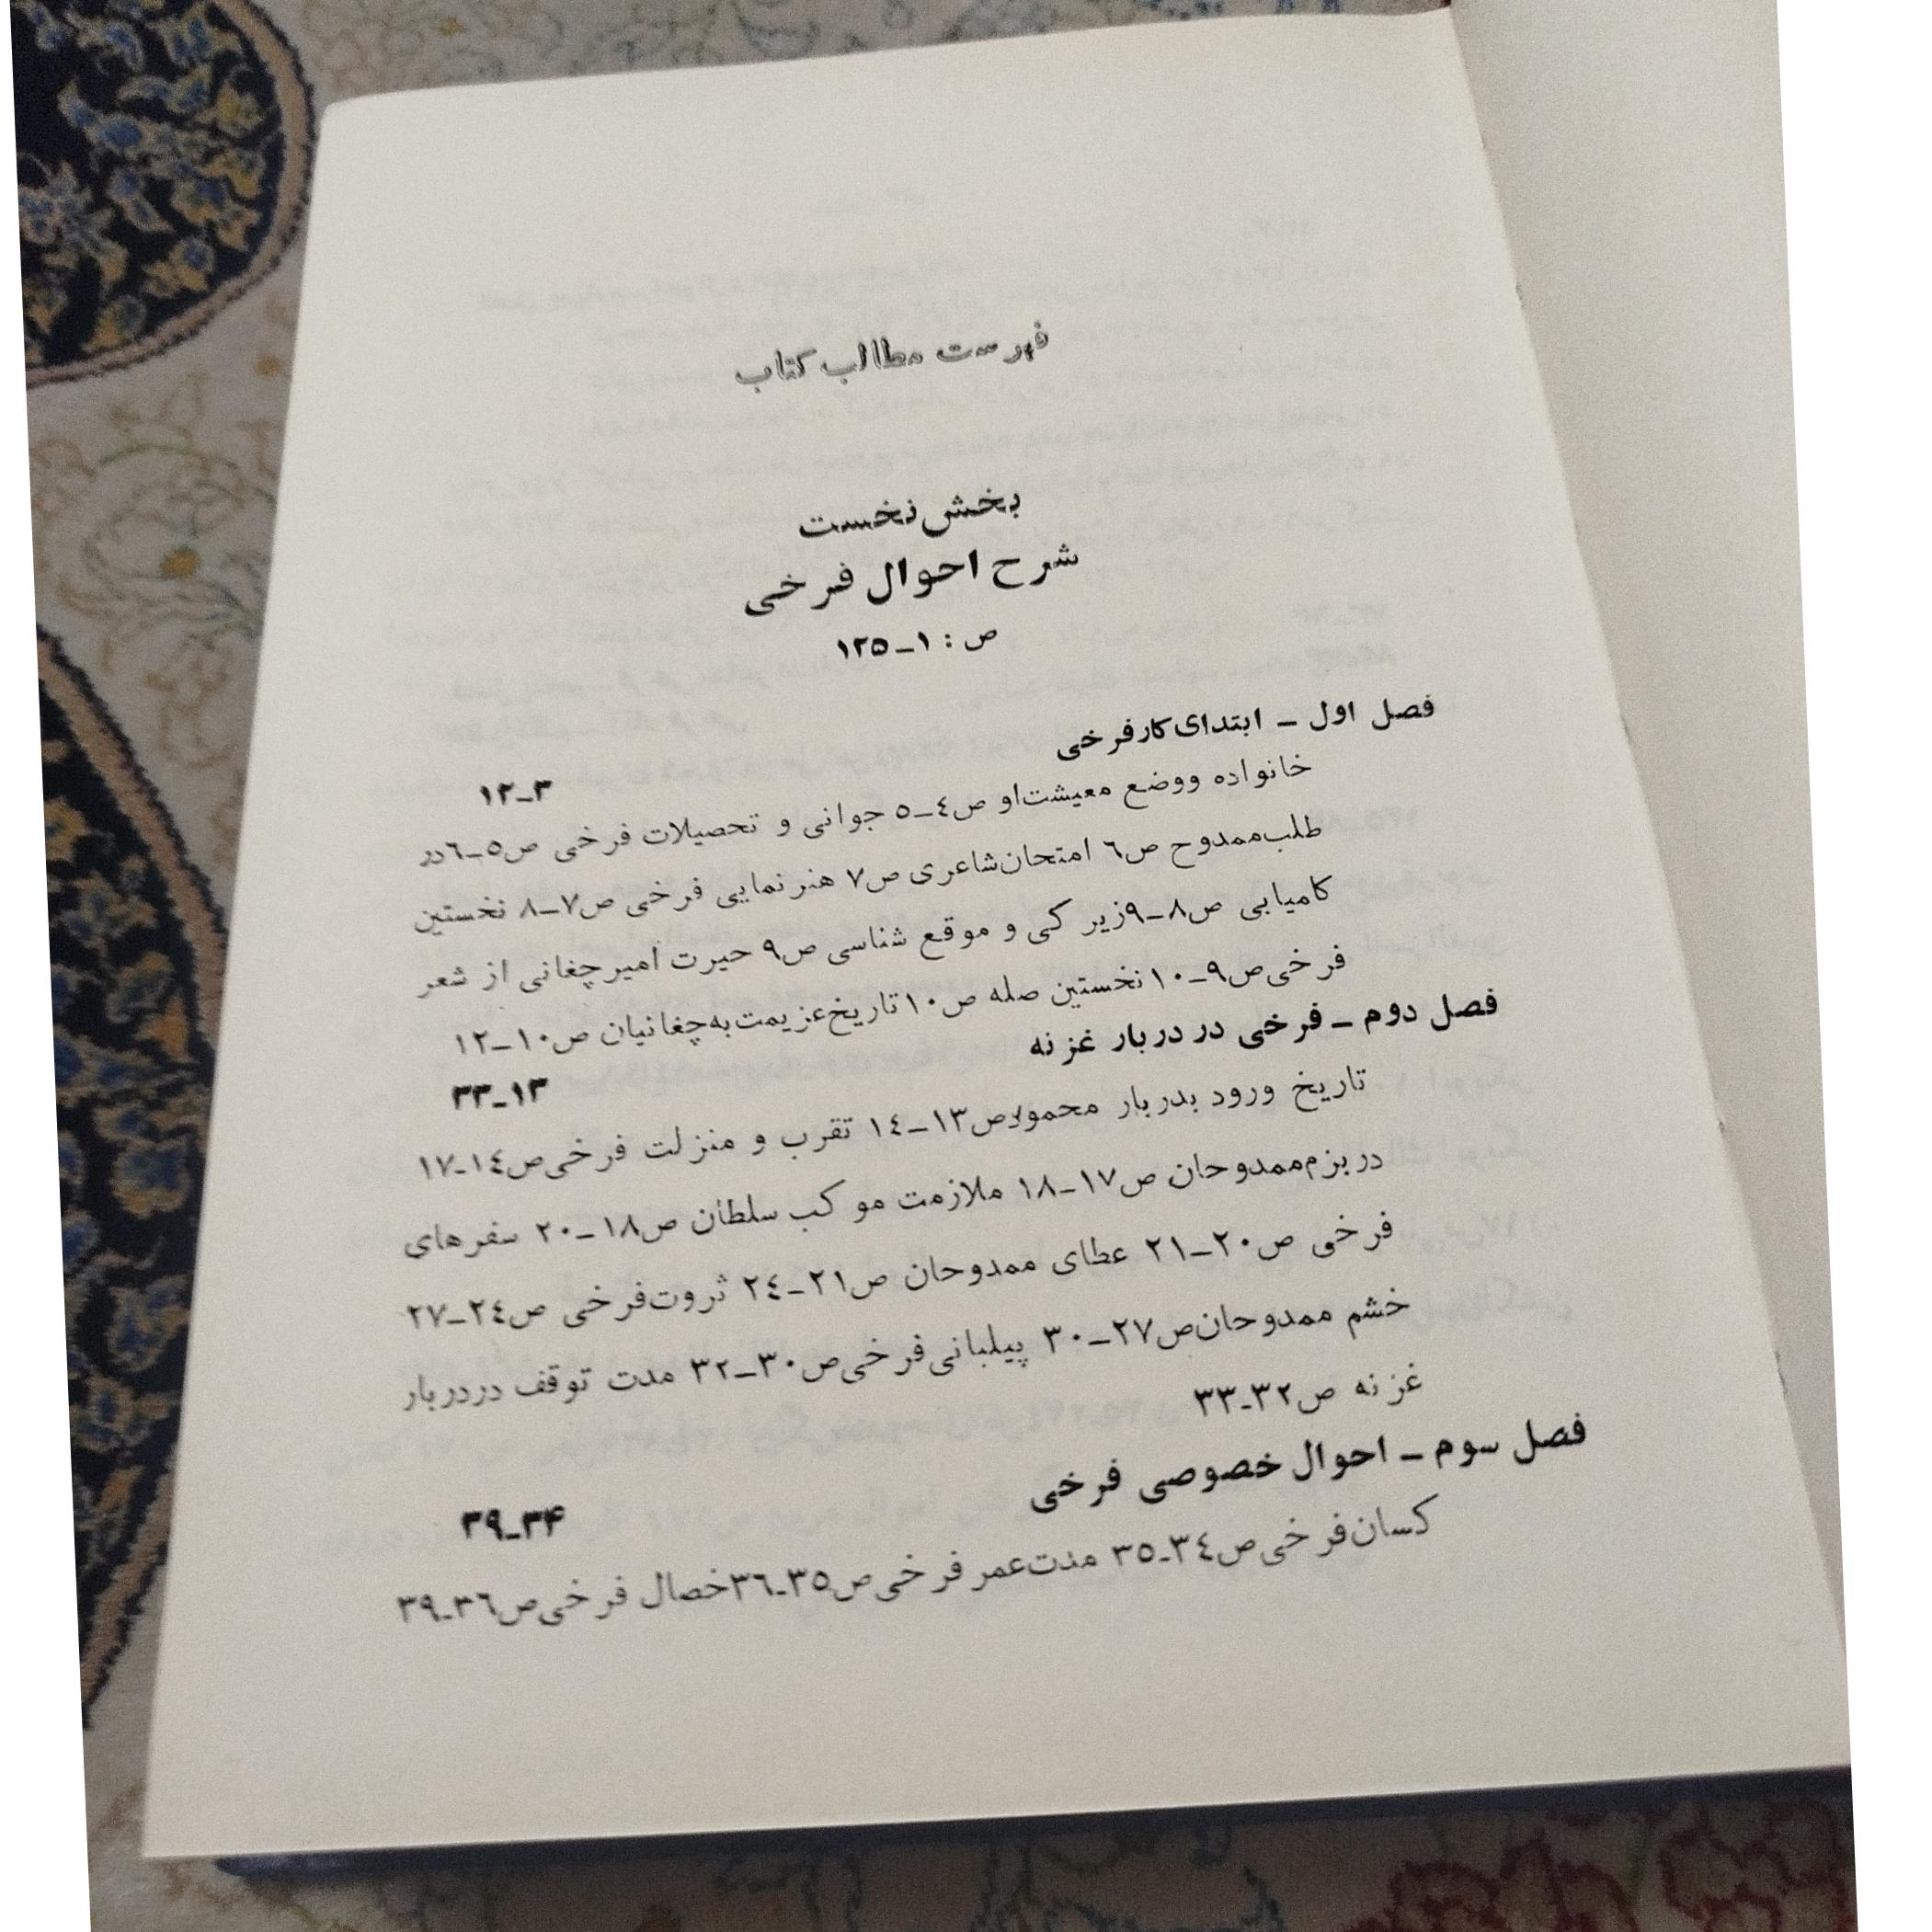 فهرست مطالب کتاب
بخش نخست
شرح احوال فرخی
ص : ۱ــ۱۲۵
فصل اول ــ ابتدای کار فرخی
۳ــ۱۲
خانواده ووضع معیشت‌او ص٤ــ٥ جوانی و تحصیلات فرخی ص٥ــ٦در
طلب‌ممدوح ص٦ امتحان‌شاعری ص۷ هنر نمایی فرخی ص۷ــ۸ نخستین
کامیابی ص۸ــ۹زیر کی و موقع شناسی ص۹ حیرت امیرچغانی از شعر
فرخی‌ص۹ــ۱۰ نخستین صله ص۱۰ تاریخ‌عزیمت‌به‌چغانیان ص۱۰ــ۱۲
فصل دوم ــ فرخی در دربار غزنه
۱۳ــ۳۳
تاریخ ورود بدربار محمودص۱۳ــ۱٤ تقرب و منزلت فرخی‌ص۱٤ــ۱۷
در بزم‌ممدوحان ص۱۷ــ۱۸ ملازمت موکب سلطان ص۱۸ــ۲۰ سفرهای
فرخی ص۲۰ــ۲۱ عطای ممدوحان ص۲۱ــ۲٤ ثروت‌فرخی ص۲٤ــ۲۷
خشم ممدوحان‌ص۲۷ــ۳۰ پیلبانی‌فرخی‌ص۳۰ــ۳۲ مدت توقف دردربار
غزنه ص۳۲ــ۳۳
فصل سوم ــ احوال خصوصی فرخی
۳۴ــ۳۹
کسان‌فرخی‌ص۳٤ــ۳٥ مدت‌عمر فرخی‌ص۳٥ــ۳٦خصال فرخی‌ص۳٦ــ۳۹